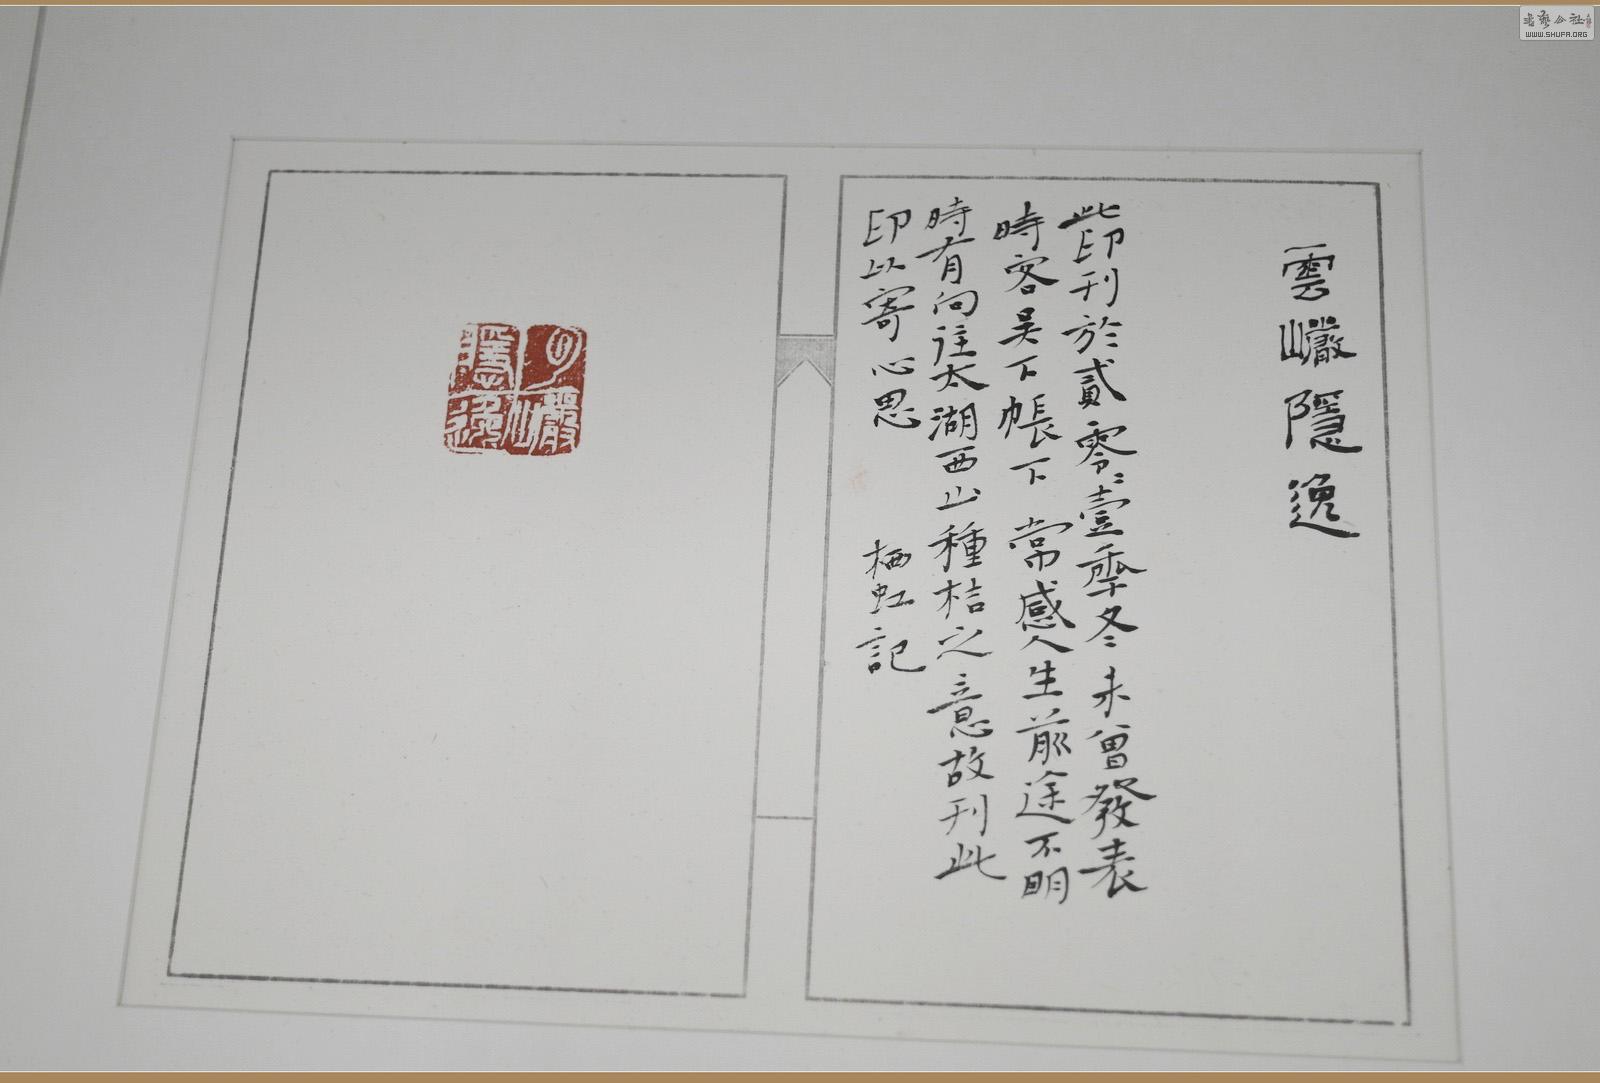 雲巗隱逸
此印刊於貳零零壹季冬未曾發表
時客吴下帳下常感人生前途不明
時有向往太湖西山種桔之意故刊此
印以寄心思
栖虹記
雲巖隱逸
書藝公社
WWW.SHUFA.ORG